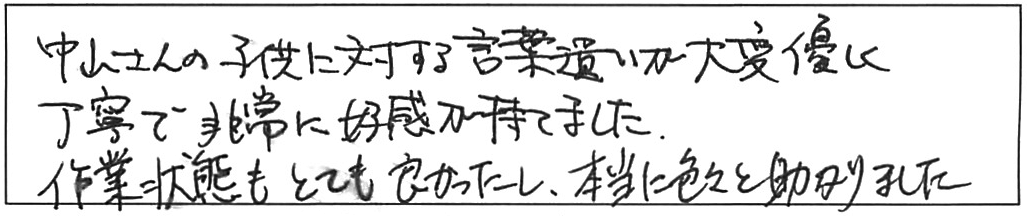 中山さんの子供に対する言葉遣いが大変優しく
丁寧で非常に好感が持てました.
作業状態もとても良かったし、本当に色々と助かりました